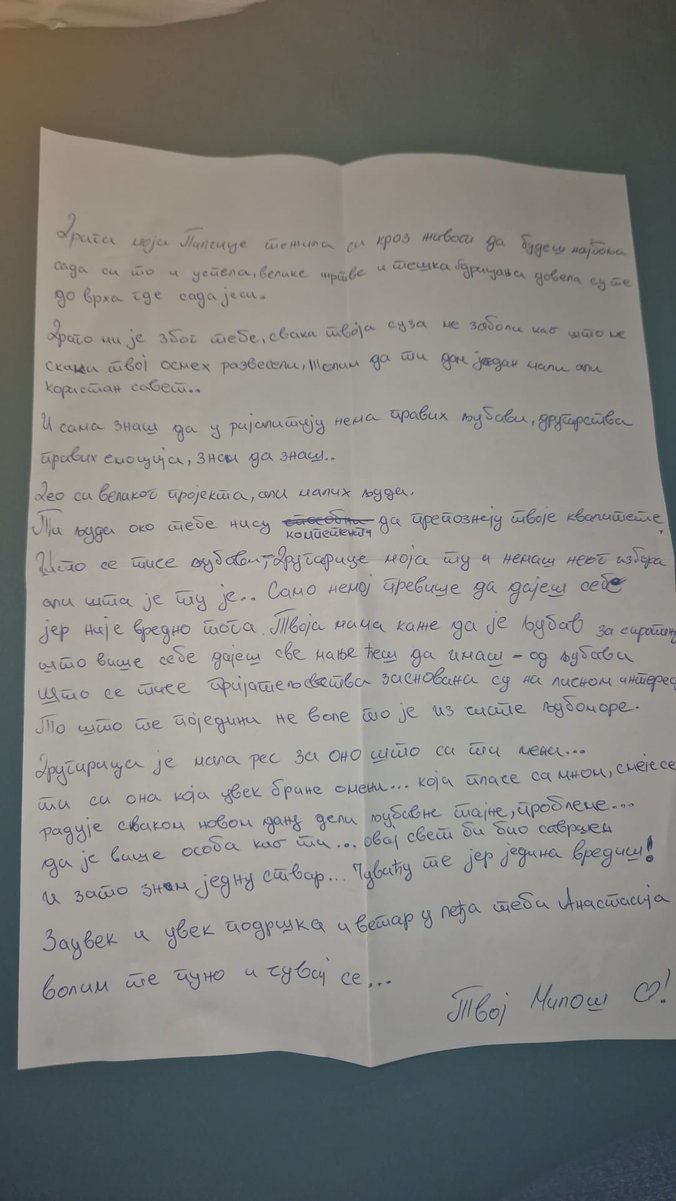 Драга моја Пилгице тежила си кроз живот да будеш најбоља
сада си то и успела, велике жртве и тешка одрицања довела су те
до врха где сада јеси.
Драго ми је због тебе, свака твоја суза ме заболи као што ме
сваки твој осмех развесели, желим да ти дам један мали али
користан савет..
И сама знаш да у ријалитију нема правих љубави, другарства
правих емоција, знам да знаш..
Део си великог пројекта, али малих људи.
Ти људи око тебе нису компетентни да препознају твоје квалитете,
Што се тисе љубави, Другарице моја ту и немаш неког избора
али шта је ту је.. Само немој превише да дајеш себе
јер није вредно тога. Твоја мама каже да је љубав за сиротињу
што више себе дајеш све мање ћеш да имаш - од љубави
Што се тисе пријатељства засновани су на лисном интересу
То што те поједини не воле то је из чисте љубоморе.
Другарица је мала рес за оно што си ти мени...
ти си она која увек брине о мени... која пласе са мном, смеје се
радује сваком новом дану дели љубавне тајне, проблеме...
да је више особа као ти... овај свет би био савршен
И зато знам једну ствар... Чуваћу те јер једина вредиш!
Заувек и увек подршка и ветар у леђа теби Анастасија
волим те пуно и чувај се...
Твој Милош ♡!